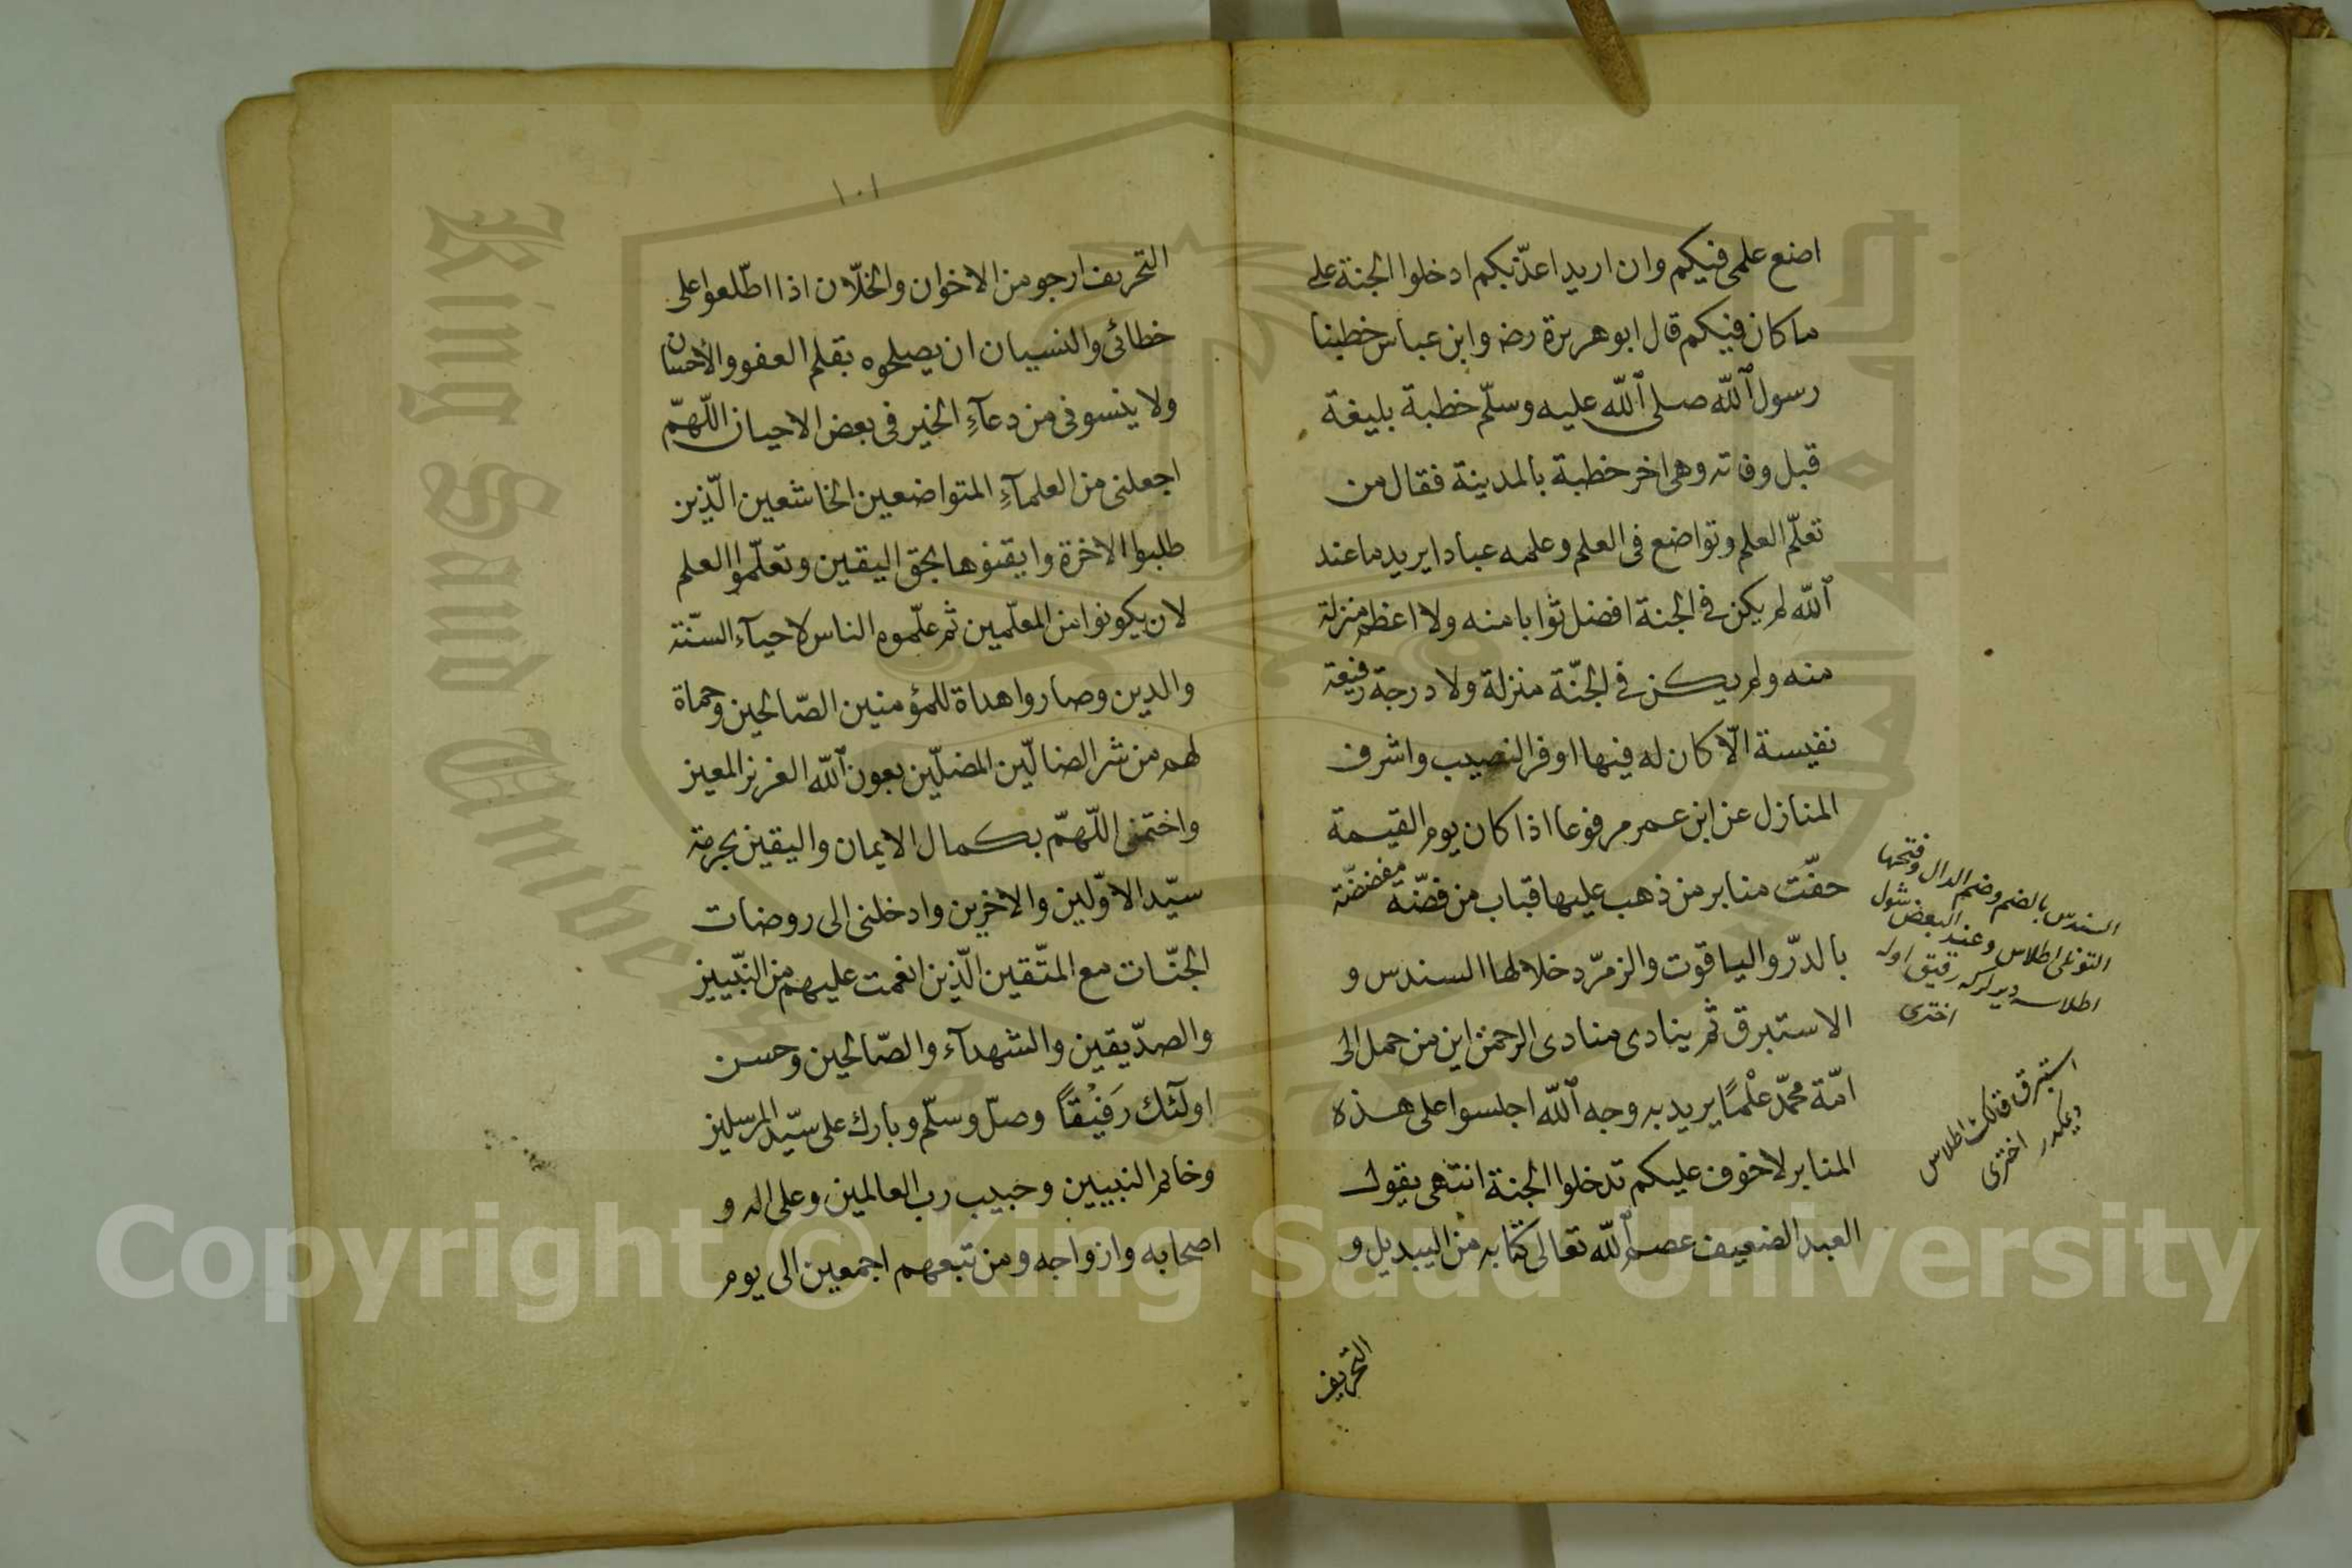 اصنع علمى فيكم وان اريد اعذّبكم ادخلوا الجنة على
ما كان فيكم قال ابو هريرة رضه وابن عباس خطبنا
رسول الله صلى الله عليه وسلّم خطبة بليغة
قبل وفاته وهى اخر خطبة بالمدينة فقال من
تعلّم العلم وتواضع فى العلم وعلمه عبادا يريد ما عند
الله لم يكن فى الجنة افضل ثوابا منه ولا اعظم منزلة
منه ولم يكن فى الجنّة منزلة ولا درجة رفيعة
نفيسة الّا كان له فيها اوفر النصيب واشرف
المنازل عن ابن عمر مرفوعا اذا كان يوم القيمة
حفّت منابر من ذهب عليها قباب من فضّة مفضضّة
بالدرّ والياقوت والزمرّد خلالها السندس و
الاستبرق ثم ينادى منادى الرحمن اين من حمل الى
امّة محمّد علْمًا يريد به وجه الله اجلسوا على هذه
المنابر لا خوف عليكم تدخلوا الجنة انتهى يقول
العبد الضعيف عصم الله تعالى كتابه من التبديل و
التحريف
السندس بالضم وضم الدال وفتحها
التونلى اطلاس وعند البعض شول
اطلاسه ديرلركه رقيق اوله
اخترى
استبرق قالك اطلاس
ديمكدر اخترى
١٠١
التحريف ارجو من الاخوان والخلّان اذا اطّلعوا على
خطائى والنسيان ان يصلحوه بقلم العفو والأحسان
ولا ينسونى من دعآءِ الخير فى بعض الاحيان اللّهمّ
اجعلنى من العلمآءِ المتواضعين الخاشعين الّذين
طلبوا الاخرة وايقنوها بحق اليقين وتعلّموا العلم
لان يكونوا من المعلّمين ثم علّموه الناس لاحيآء السّنّة
والدين وصاروا هداة للمؤمنين الصّالحين وحماة
لهم من شر الضالّين المضلّين بعون الله العزيز المعين
واختمنى اللّهمّ بكمال الايمان واليقين بحرمة
سيّد الاوّلين والاخرين وادخلنى الى روضات
الجنّات مع المتّقين الّذين انعمت عليهم من النبّيين
والصدّيقين والشهدآء والصّالحين وحسن
اولٓئك رَفيْقًا وصلّ وسلّم وبارك على سيّد المرسلين
وخاتم النبيين وحبيب رب العالمين وعلى اله و
اصحابه وازواجه ومن تبعهم اجمعين الى يوم
King Saud University
Copyright © King Saud University